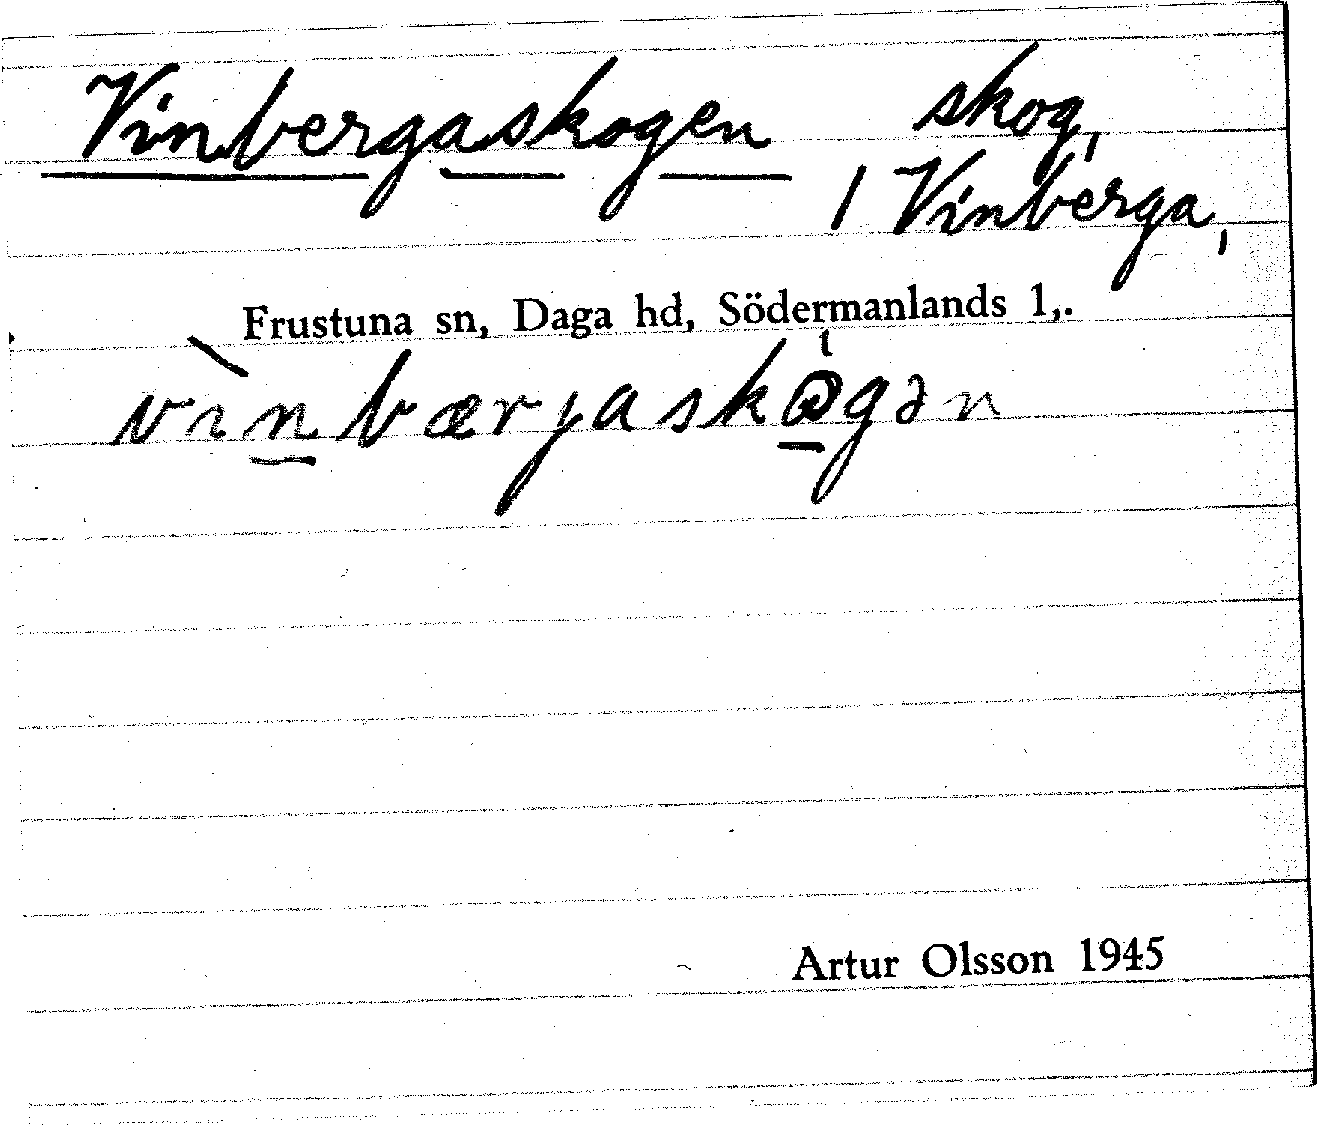 Vinbergaskogen skog,
/ Vinberga,
Frustuna sn, Daga hd, Södermanlands l,.
vìnbærjaskògən
Artur Olsson 1945